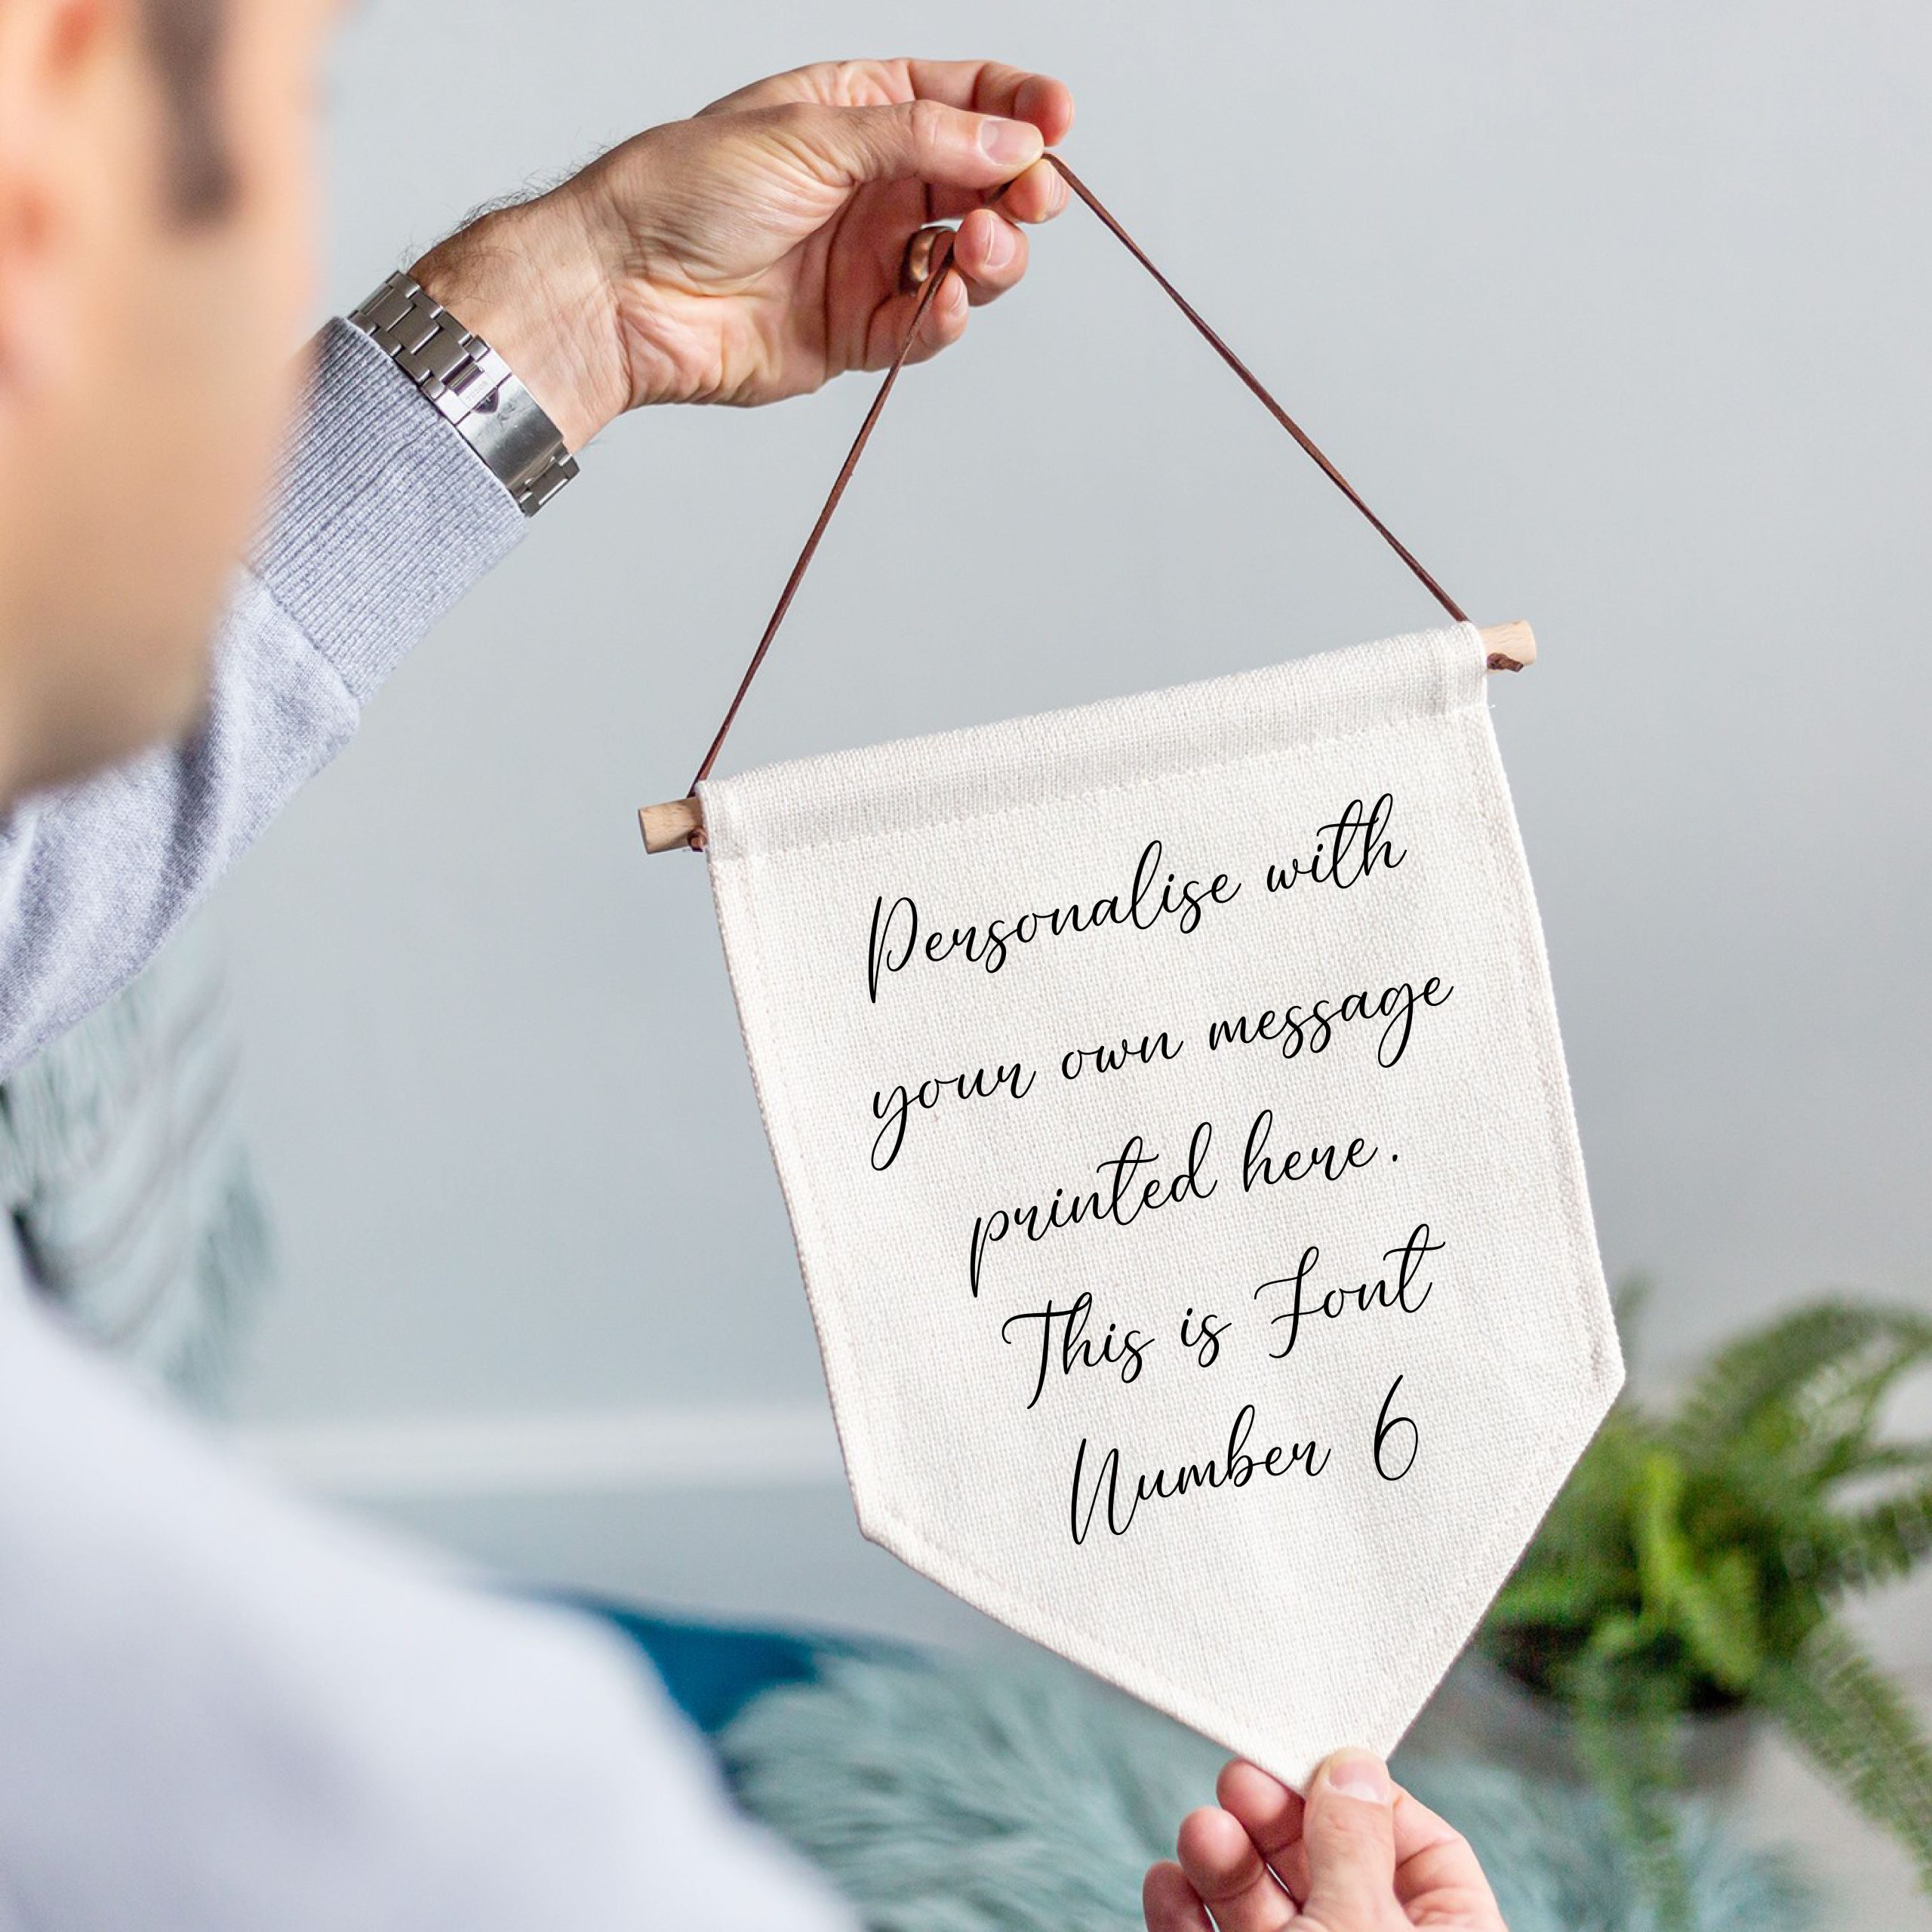 Personalise with
your own message
printed here.
This is Font
Number 6